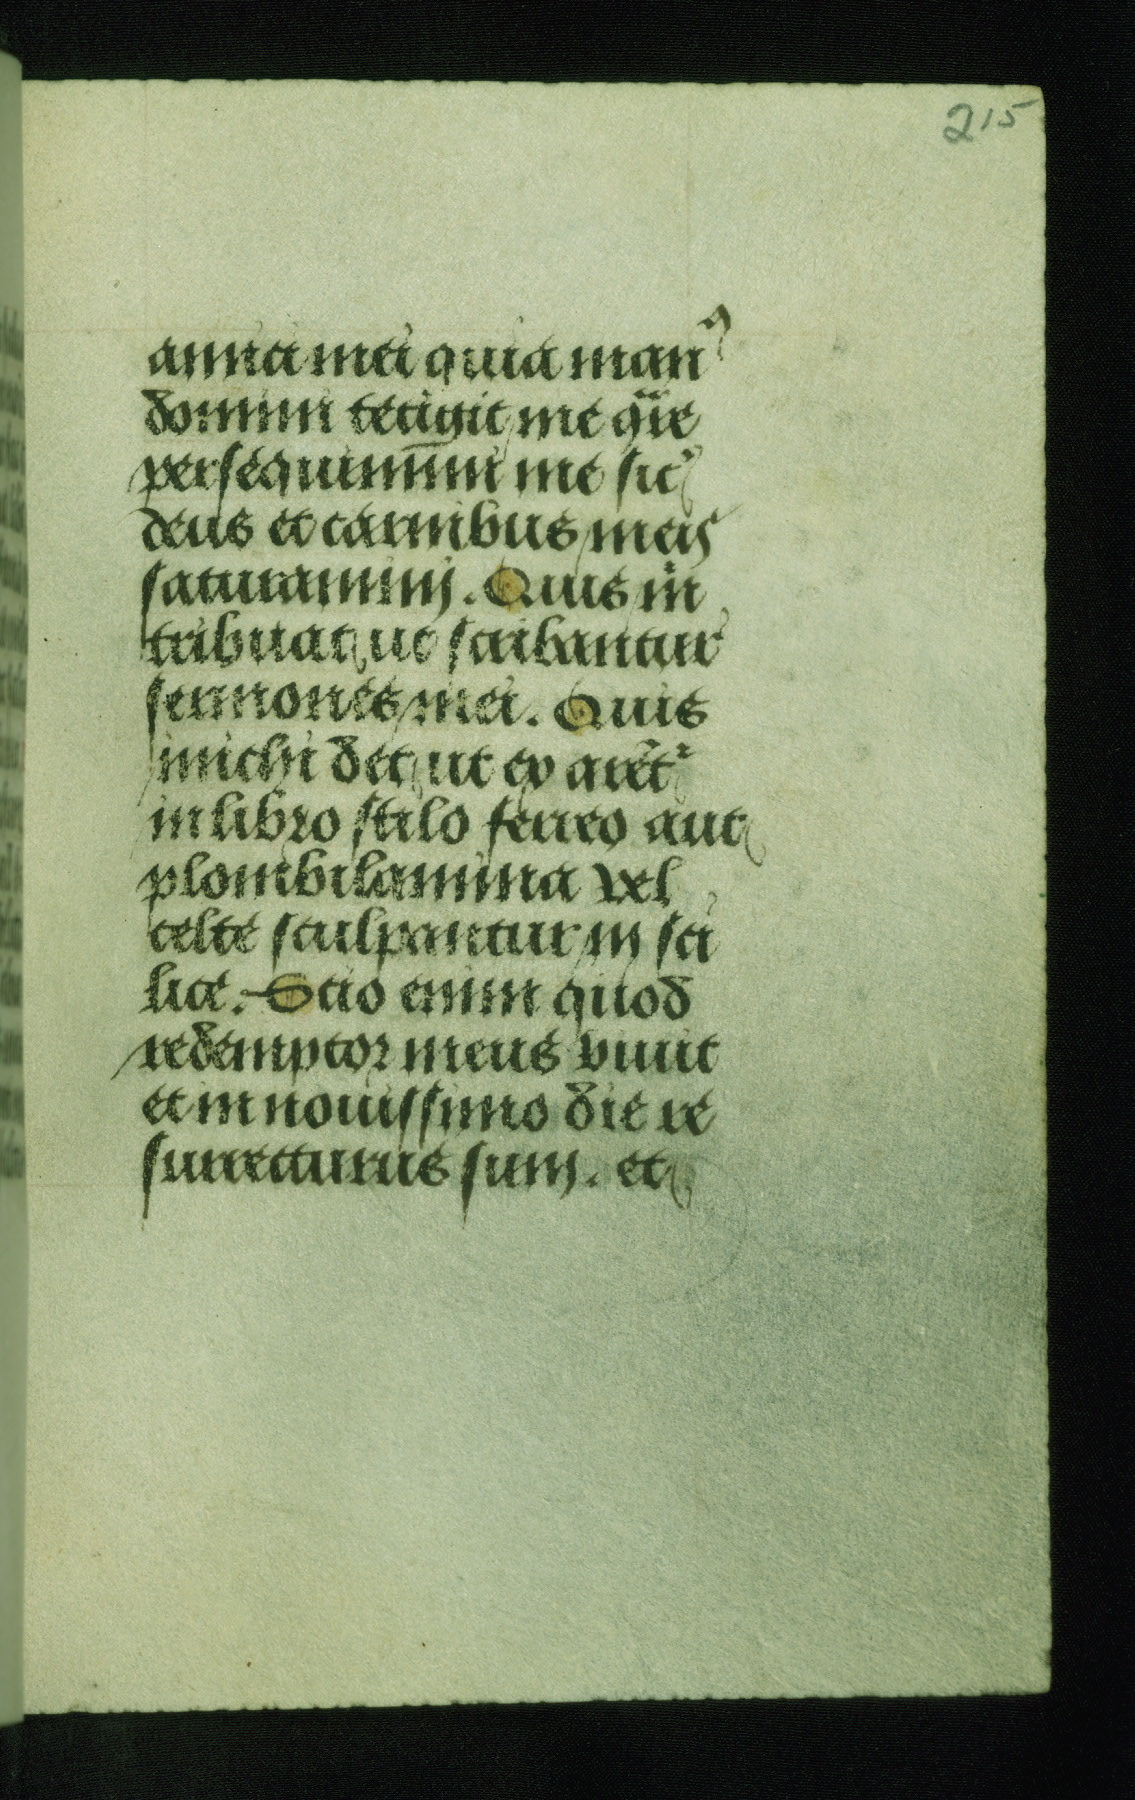 215
amici mei quia man⁹
domini tetigit me q̈re
persequimīni me sic̛
deus et carnibus meis
saturaminj. Quis m̊
tribuat ut scribantur
sermones mei. Quis
michi det ut ex arēt̛
in libro stilo ferreo aut
plombi lamina vel
celte sculpantur in sci
lice. Scio enim quod
redemptor meus viuit
et in nouissimo die re
surrecturus sum. et